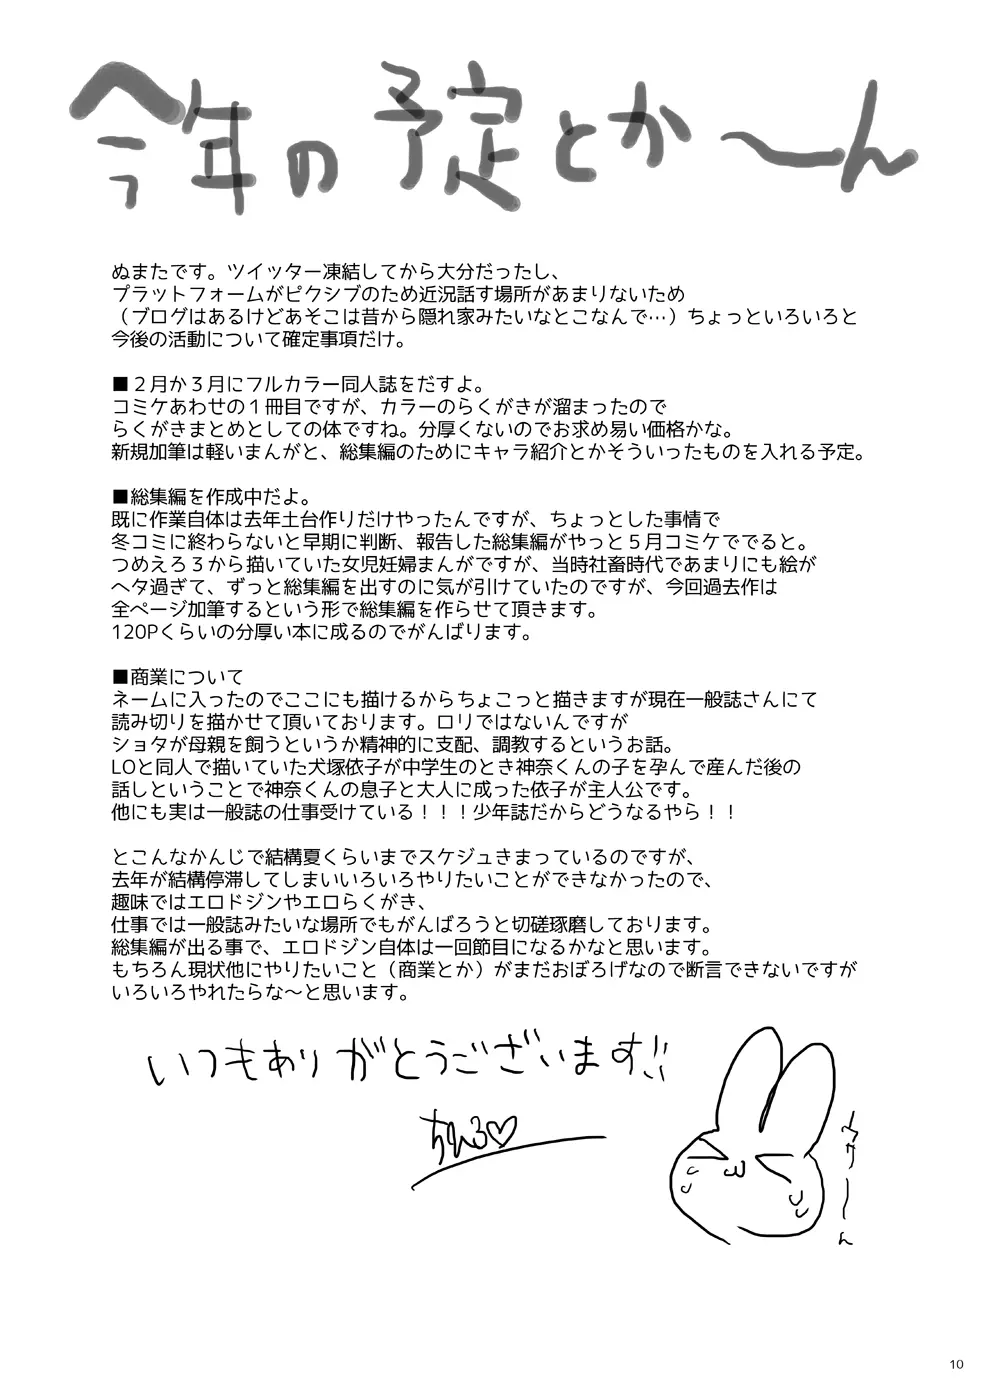 今年の予定とか〜ん
ぬまたです。ツイッター凍結してから大分だったし、
プラットフォームがピクシブのため近況話す場所があまりないため
（ブログはあるけどあそこは昔から隠れ家みたいなとこなんで…）ちょっといろいろと
今後の活動について確定事項だけ。
■２月か３月にフルカラー同人誌をだすよ。
コミケあわせの１冊目ですが、カラーのらくがきが溜まったので
らくがきまとめとしての体ですね。分厚くないのでお求め易い価格かな。
新規加筆は軽いまんがと、総集編のためにキャラ紹介とかそういったものを入れる予定。
■総集編を作成中だよ。
既に作業自体は去年土台作りだけやったんですが、ちょっとした事情で
冬コミに終わらないと早期に判断、報告した総集編がやっと５月コミケででると。
ヘタ過ぎて、ずっと総集編を出すのに気が引けていたのですが、今回過去作は
全ページ加筆するという形で総集編を作らせて頂きます。
120Pくらいの分厚い本に成るのでがんばります。
■商業について
ネームに入ったのでここにも描けるからちょこっと描きますが現在一般誌さんにて
他にも実は一般誌の仕事受けている！！！少年誌だからどうなるやら！！
とこんなかんじで結構夏くらいまでスケジュきまっているのですが、
去年が結構停滞してしまいいろいろやりたいことができなかったので、
趣味ではエロドジンやエロらくがき、
仕事では一般誌みたいな場所でもがんばろうと切磋琢磨しております。
総集編が出る事で、エロドジン自体は一回節目になるかなと思います。
もちろん現状他にやりたいこと（商業とか）がまだおぼろげなので断言できないですが
いろいろやれたらな〜と思います。
いつもありがとうございます!!
10